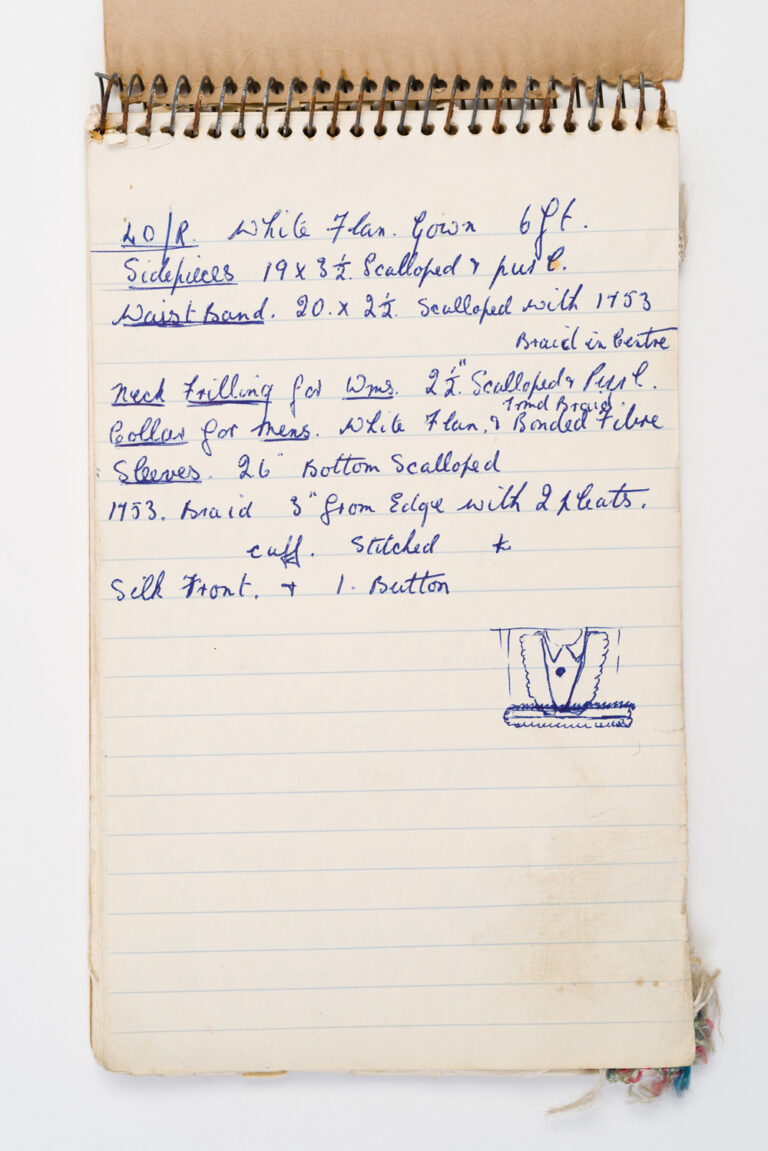 20/R. White Flan. Gown 6 ft.
Sidepieces 19 x 3½. Scalloped & purl.
Waist Band. 20. x 2½. Scalloped with 1753
Braid in Centre
Neck Frilling for Wms. 2½" Scalloped & Purl.
Trmd Braid.
Collar for Mens. White Flan. & Bonded Fibre
Sleeves. 26" Bottom Scalloped
1753. Braid 3" from Edge with 2 pleats.
cuff. Stitched
Silk Front. + 1. Button